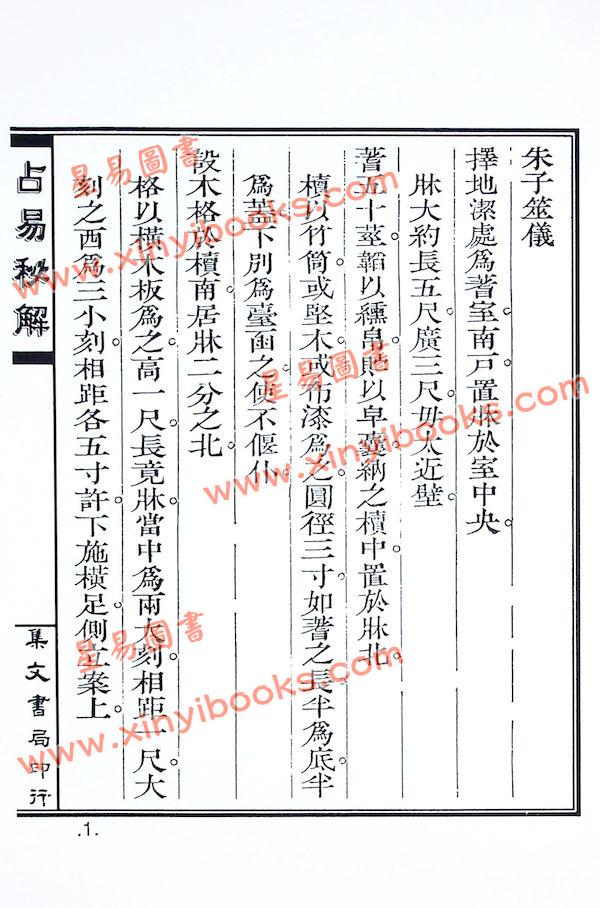 朱子筮儀
擇地潔處爲蓍室。南戸置牀於室中央。
牀大約長五尺。廣三尺。毋太近壁。
蓍五十莖。韜以纁帛。貯以皁囊。納之櫝中。置於牀北。
櫝以竹筒。或堅木。或布漆爲之。圓徑三寸。如蓍之長。半爲底。半
爲蓋。下別爲臺函之。使不偃仆。
設木格於櫝南。居牀二分之北。
格以橫木板爲之。高一尺。長竟牀。當中爲兩大刻。相距一尺。大
刻之西爲三小刻。相距各五寸許。下施橫足。側立案上。
占易秘解
集文書局印行
.1.
星易圖書
www.xinyibooks.com
星易圖書
www.xinyibooks.com
星易圖書
www.xinyibooks.com